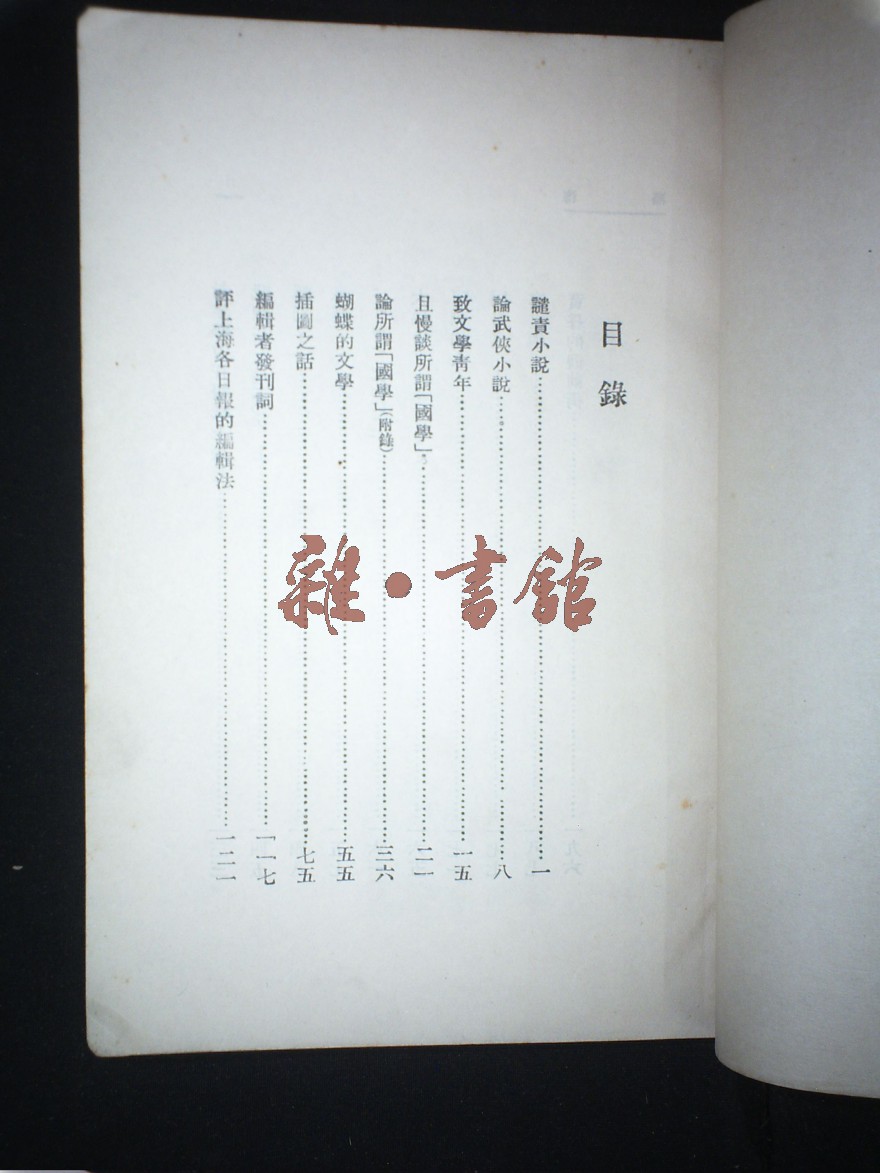 目錄
譴責小說……一
論武俠小說……八
致文學靑年……一五
且慢談所謂「國學」……二一
論所謂「國學」(附錄)……三六
蝴蝶的文學……五五
插圖之話……七五
編輯者發刊詞……一一七
評上海各日報的編輯法……一二一
雜·書館